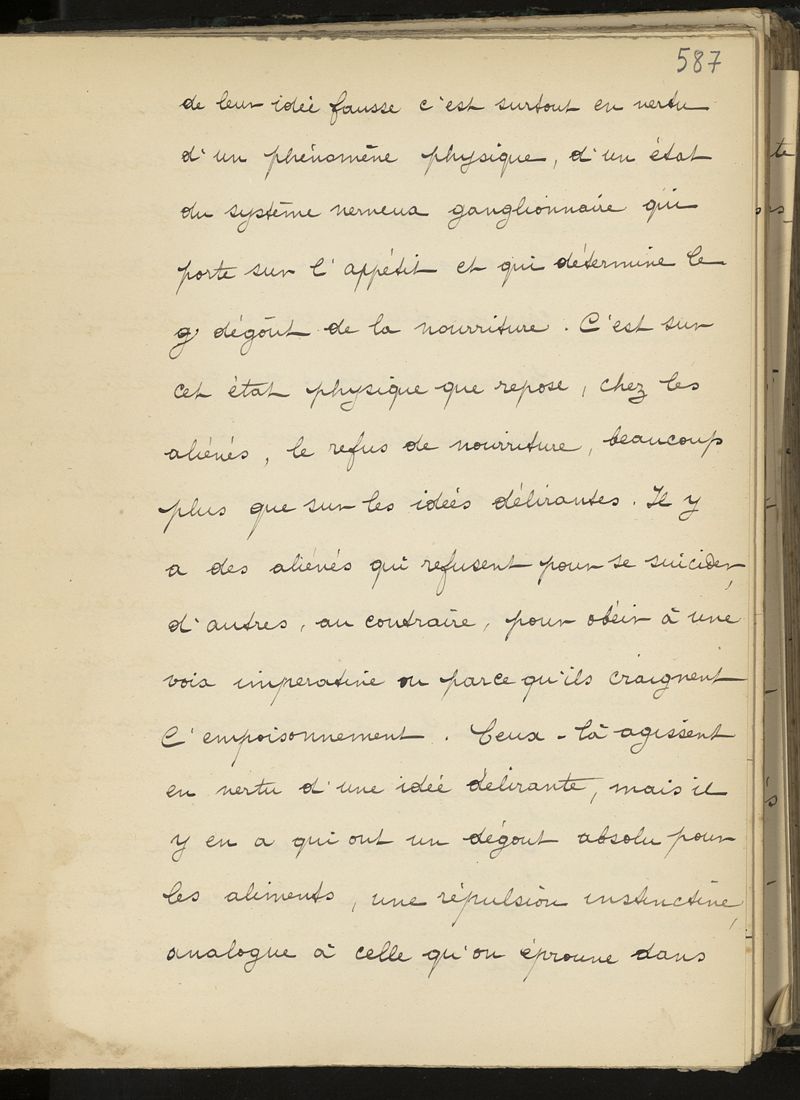 587
de leur idée fausse c'est surtout en vertu
d'un phénomène physique, d'un état
du système nerveux ganglionnaire qui
porte sur l'appétit et qui détermine le
g dégôut de la nourriture. C'est sur
cet état physique que repose, chez les
aliénés, le refus de nourriture, beaucoup
plus que sur les idées délirantes. Il y
a des aliénés qui refusent pour se suicider,
d'autres, au contraire, pour obéir à une
voix imperative ou parce qu'ils craignent
l'empoisonnement. Ceux-là agissent
en vertu d'une idée délirante, mais il
y en a qui ont un dégout absolu pour
les aliments, une répulsion instinctive,
analogue à celle qu'on éprouve dans